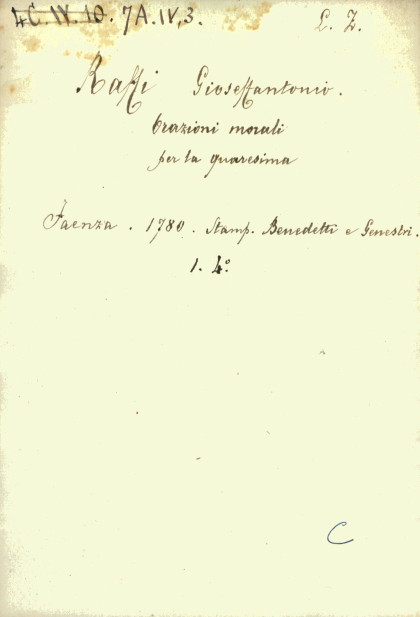 4C. IV. 10. 7A. IV, 3. L. Z.
Raffi Gioseffantonio.
Orazioni morali
per la quaresima
Faenza. 1780. Stamp. Benedetti e Genestri.
1. 4º.
C